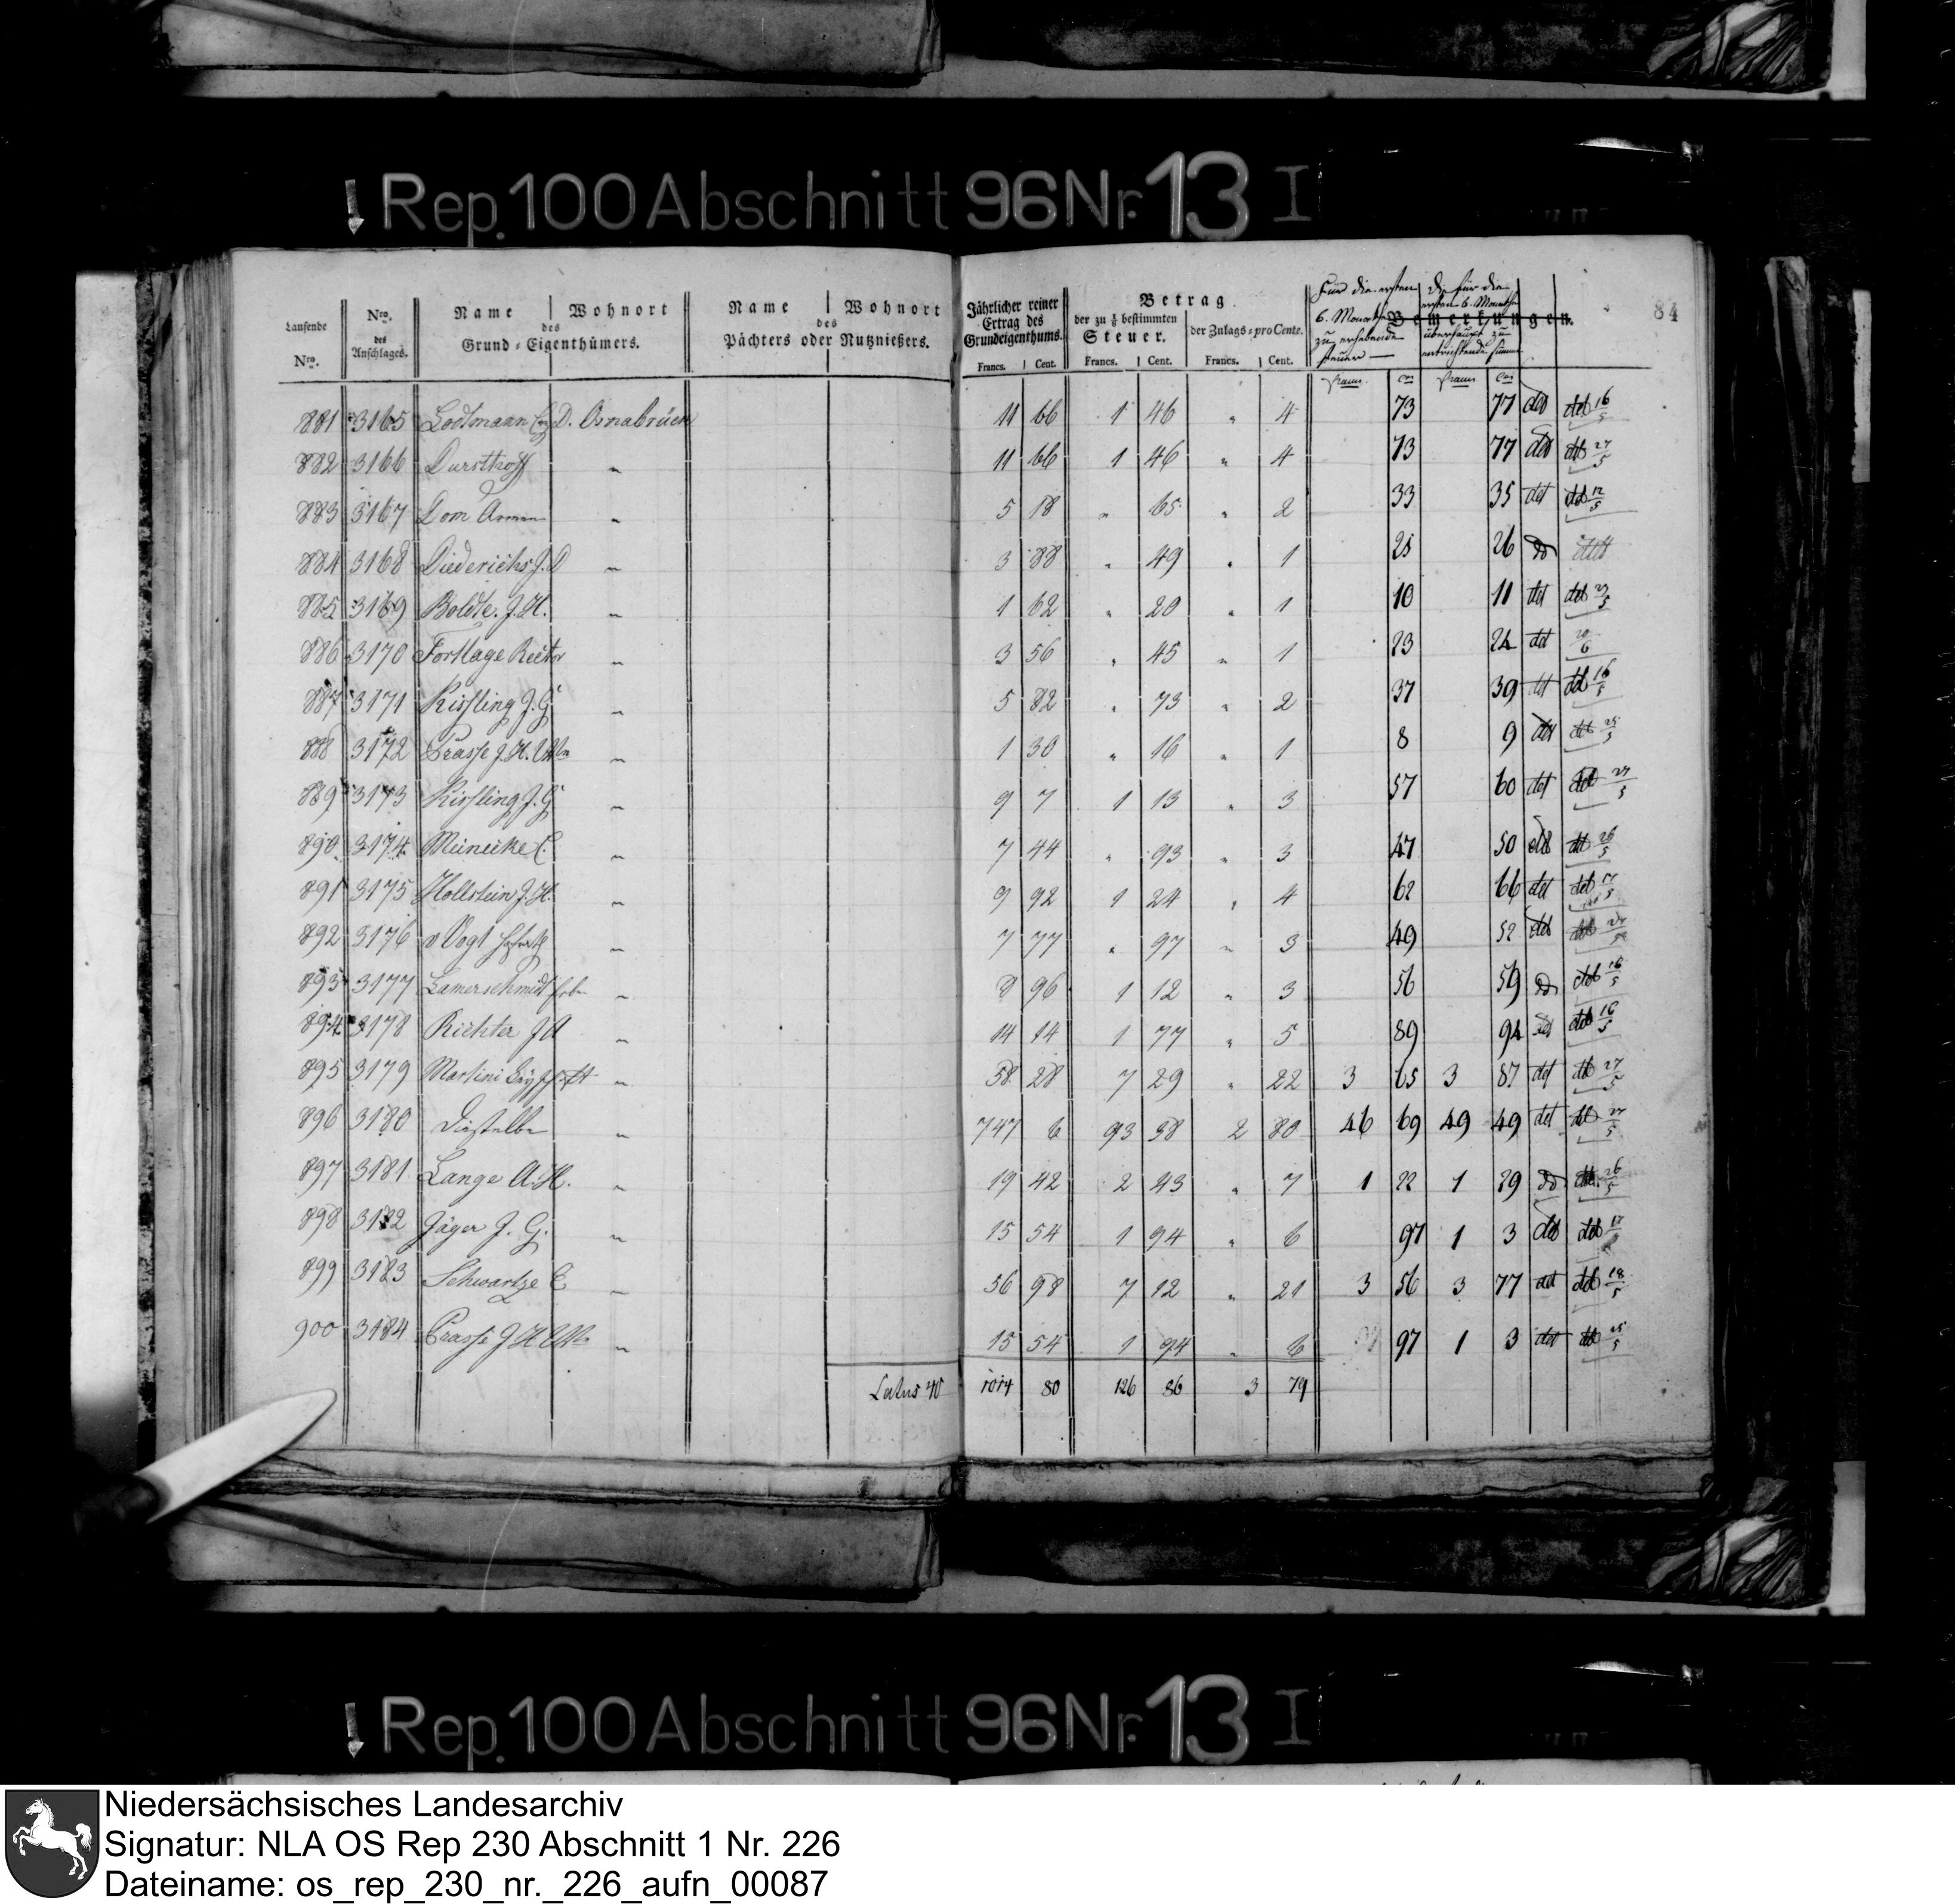 Rep. 100 Abschnitt 96 Nr. 13 I
84
Laufende Nro.
Nro. des Anschlages.
Name | Wohnort des Grund-Eigenthümers.
Name | Wohnort des Pächters oder Nutznießers.
Jährlicher reiner Ertrag des Grundeigenthums. Francs. | Cent.
Betrag
der zu 1/8 bestimmten Steuer. Francs. | Cent.
der Zulags-pro Cente. Francs. | Cent.
Bemerkungen.
Für die ersten 6. Monathe zu erhebende Steuer
für die ersten 6. Monathe überhaupt zu entrichtende Summe
881 3165 Lodtmann D. Osnabrück 11 66 1 46 " 4 73 77 det det 16/5
882 3166 Dursthoff " 11 66 1 46 " 4 73 77 det det 27/5
883 3167 Dom " 5 18 " 65 " 2 33 35 det det 12/5
884 3168 Diederichs J. D " 3 88 " 49 " 1 25 26 do
885 3169 Boldte. J. H. " 1 62 " 20 " 1 10 11 det det
886 3170 Fortlage Rector " 3 56 " 45 " 1 23 24 det
887 3171 Kisling J. G " 5 82 " 73 " 2 37 39 det det 16/5
888 3172 Prasse J. H. " 1 30 " 16 " 1 8 9 det det 25/5
889 3173 Kisling J. G " 9 7 1 13 " 3 57 60 det det
890 3174 Meinecke C. " 7 44 " 93 " 3 47 50 det det 26/5
891 3175 Hollstein J. H. " 9 92 1 24 " 4 62 66 det det 17/5
892 3176 v Vogt " 7 77 " 97 " 3 49 52 det det
893 3177 Lamerschmidt " 8 96 1 12 " 3 56 59 do det 16/5
894 3178 Richter J A " 14 14 1 77 " 5 89 94 det det 16/5
895 3179 Martini " 58 28 7 29 " 22 3 65 3 87 det det 27/5
896 3180 Dieselbe " 747 6 93 38 2 80 46 69 49 49 det det
897 3181 Lange A. H. " 19 42 2 43 " 7 1 22 1 29 do det 26/5
898 3182 Jäger J. G. " 15 54 1 94 " 6 97 1 3 det det
899 3183 Schwartze C " 56 98 7 12 " 21 3 56 3 77 det det 18/5
900 3184 Prasse J H " 15 54 1 94 " 6 97 1 3 det det 25/5
Latus 40 1014 80 126 86 3 79
Rep. 100 Abschnitt 96 Nr. 13 I
Niedersächsisches Landesarchiv
Signatur: NLA OS Rep 230 Abschnitt 1 Nr. 226
Dateiname: os_rep_230_nr._226_aufn_00087